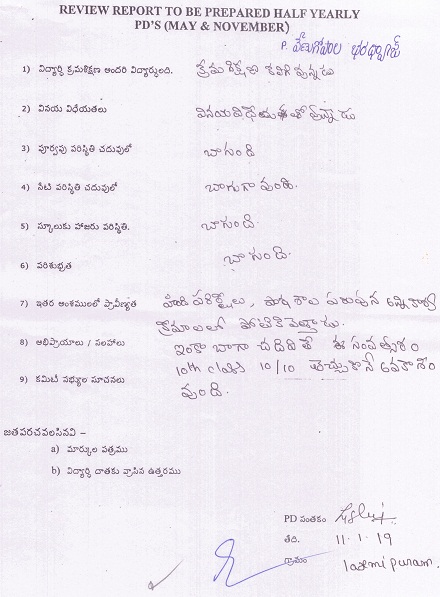 REVIEW REPORT TO BE PREPARED HALF YEARLY
PD'S (MAY & NOVEMBER)
P. వేణుగోపాల భరద్వాజ్
1) విద్యార్థి క్రమశిక్షణ అందరి విద్యార్థులది. క్రమశిక్షణ కలిగి వున్నాడు
2) వినయ విధేయతలు వినయవిధేయతలతో వున్నాడు
3) పూర్వపు పరిస్థితి చదువులో బాగుంది
4) నేటి పరిస్థితి చదువులో బాగుగా వుంది.
5) స్కూలుకు హాజరు పరిస్థితి. బాగుంది.
6) పరిశుభ్రత బాగుంది.
7) ఇతర అంశములలో ప్రావీణ్యత పరుపున అన్ని కార్య
క్రమాలలో
8) అభిప్రాయాలు / సలహాలు ఇంకా బాగా చదివితే ఈ సంవత్సరం
10th class 10/10 తెచ్చుకొనే అవకాశం
9) కమిటీ సభ్యుల సూచనలు వుంది.
జతపరచవలసినవి –
a) మార్కుల పత్రము
b) విద్యార్థి దాతకు వ్రాసిన ఉత్తరము
PD సంతకం
తేది. 11.1.19
గ్రామం laxmipuram.